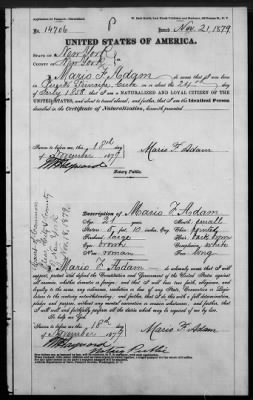 No. 14706
Issued Nov. 21, 1879
UNITED STATES OF AMERICA.
STATE OF New York
COUNTY OF New York
I, Mario F. Adam do swear that I was born
in Cuba on the 24th day
of July 1858, that I am a NATURALIZED AND LOYAL CITIZEN OF THE
UNITED STATES, and about to travel abroad; and further, that I am the identical Person
described in the Certificate of Naturalization, herewith presented.
Sworn to before me, this 18th day
of November 1879
Mario F. Adam
Notary Public.
Description of Mario F. Adam
Age: 21
Mouth: small
Stature: 5 ft. 10 inches Eng.
Forehead: large
Hair: dark brown
Eyes: brown
Complexion: white
Nose: roman
Face: long
I, Mario F. Adam do solemnly swear that I will
support, protect and defend the Constitution and Government of the United States against
all enemies, whether domestic or foreign; and that I will bear true faith, allegiance, and
loyalty to the same, any ordinance, resolution or law of any State, Convention or Legis-
lature to the contrary notwithstanding; and further, that I do this with a full determination,
pledge, and purpose, without any mental reservation or evasion whatsoever; and further,
that I will well and faithfully perform all the duties which may be required of me by law.
So help me God.
Sworn to before me, this 18th day
of November 1879
Mario F. Adam
Notary Public